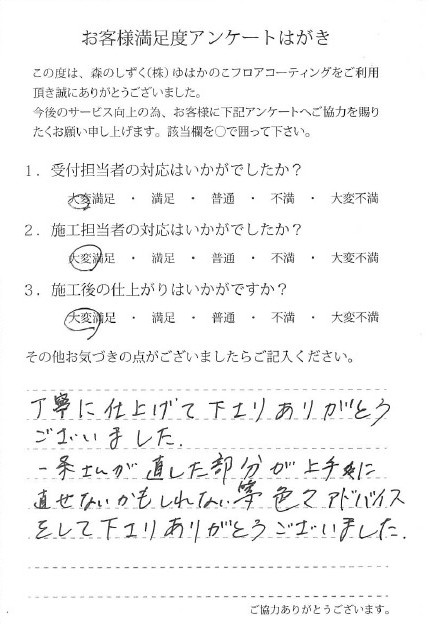 お客様満足度アンケートはがき
この度は、森のしずく(株)ゆはかのこフロアコーティングをご利用
頂き誠にありがとうございました。
今後のサービス向上の為、お客様に下記アンケートへご協力を賜り
たくお願い申し上げます。該当欄を○で囲って下さい。
1．受付担当者の対応はいかがでしたか？
大変満足 ・ 満足 ・ 普通 ・ 不満 ・ 大変不満
2．施工担当者の対応はいかがでしたか？
大変満足 ・ 満足 ・ 普通 ・ 不満 ・ 大変不満
3．施工後の仕上がりはいかがですか？
大変満足 ・ 満足 ・ 普通 ・ 不満 ・ 大変不満
その他お気づきの点がございましたらご記入ください。
丁寧に仕上げて下さりありがとう
ございました.
一条さんが直した部分が上手に
直せないかもしれない等色々アドバイス
をして下さりありがとうございました.
ご協力ありがとうございます。